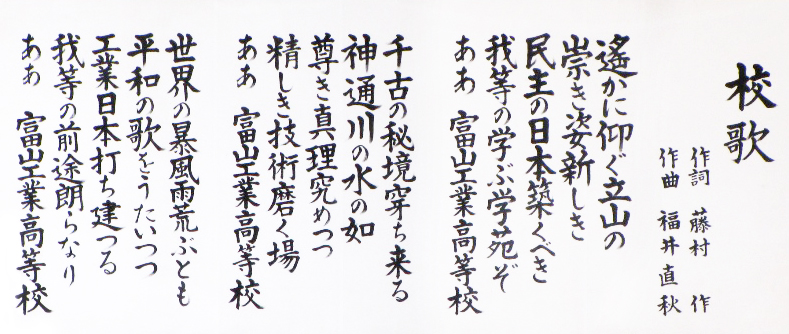 校歌
作詞 藤村 作
作曲 福井直秋
遙かに仰ぐ立山の
崇き姿新しき
民主の日本築くべき
我等の学ぶ学苑ぞ
ああ 富山工業高等校
千古の秘境穿ち来る
神通川の水の如
尊き真理究めつつ
精しき技術磨く場
ああ 富山工業高等校
世界の暴風雨荒ぶとも
平和の歌をうたいつつ
工業日本打ち建つる
我等の前途朗らなり
ああ 富山工業高等校